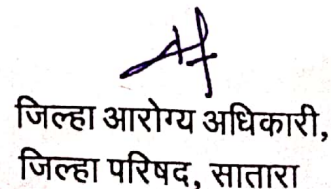 जिल्हा आरोग्य अधिकारी,
जिल्हा परिषद, सातारा